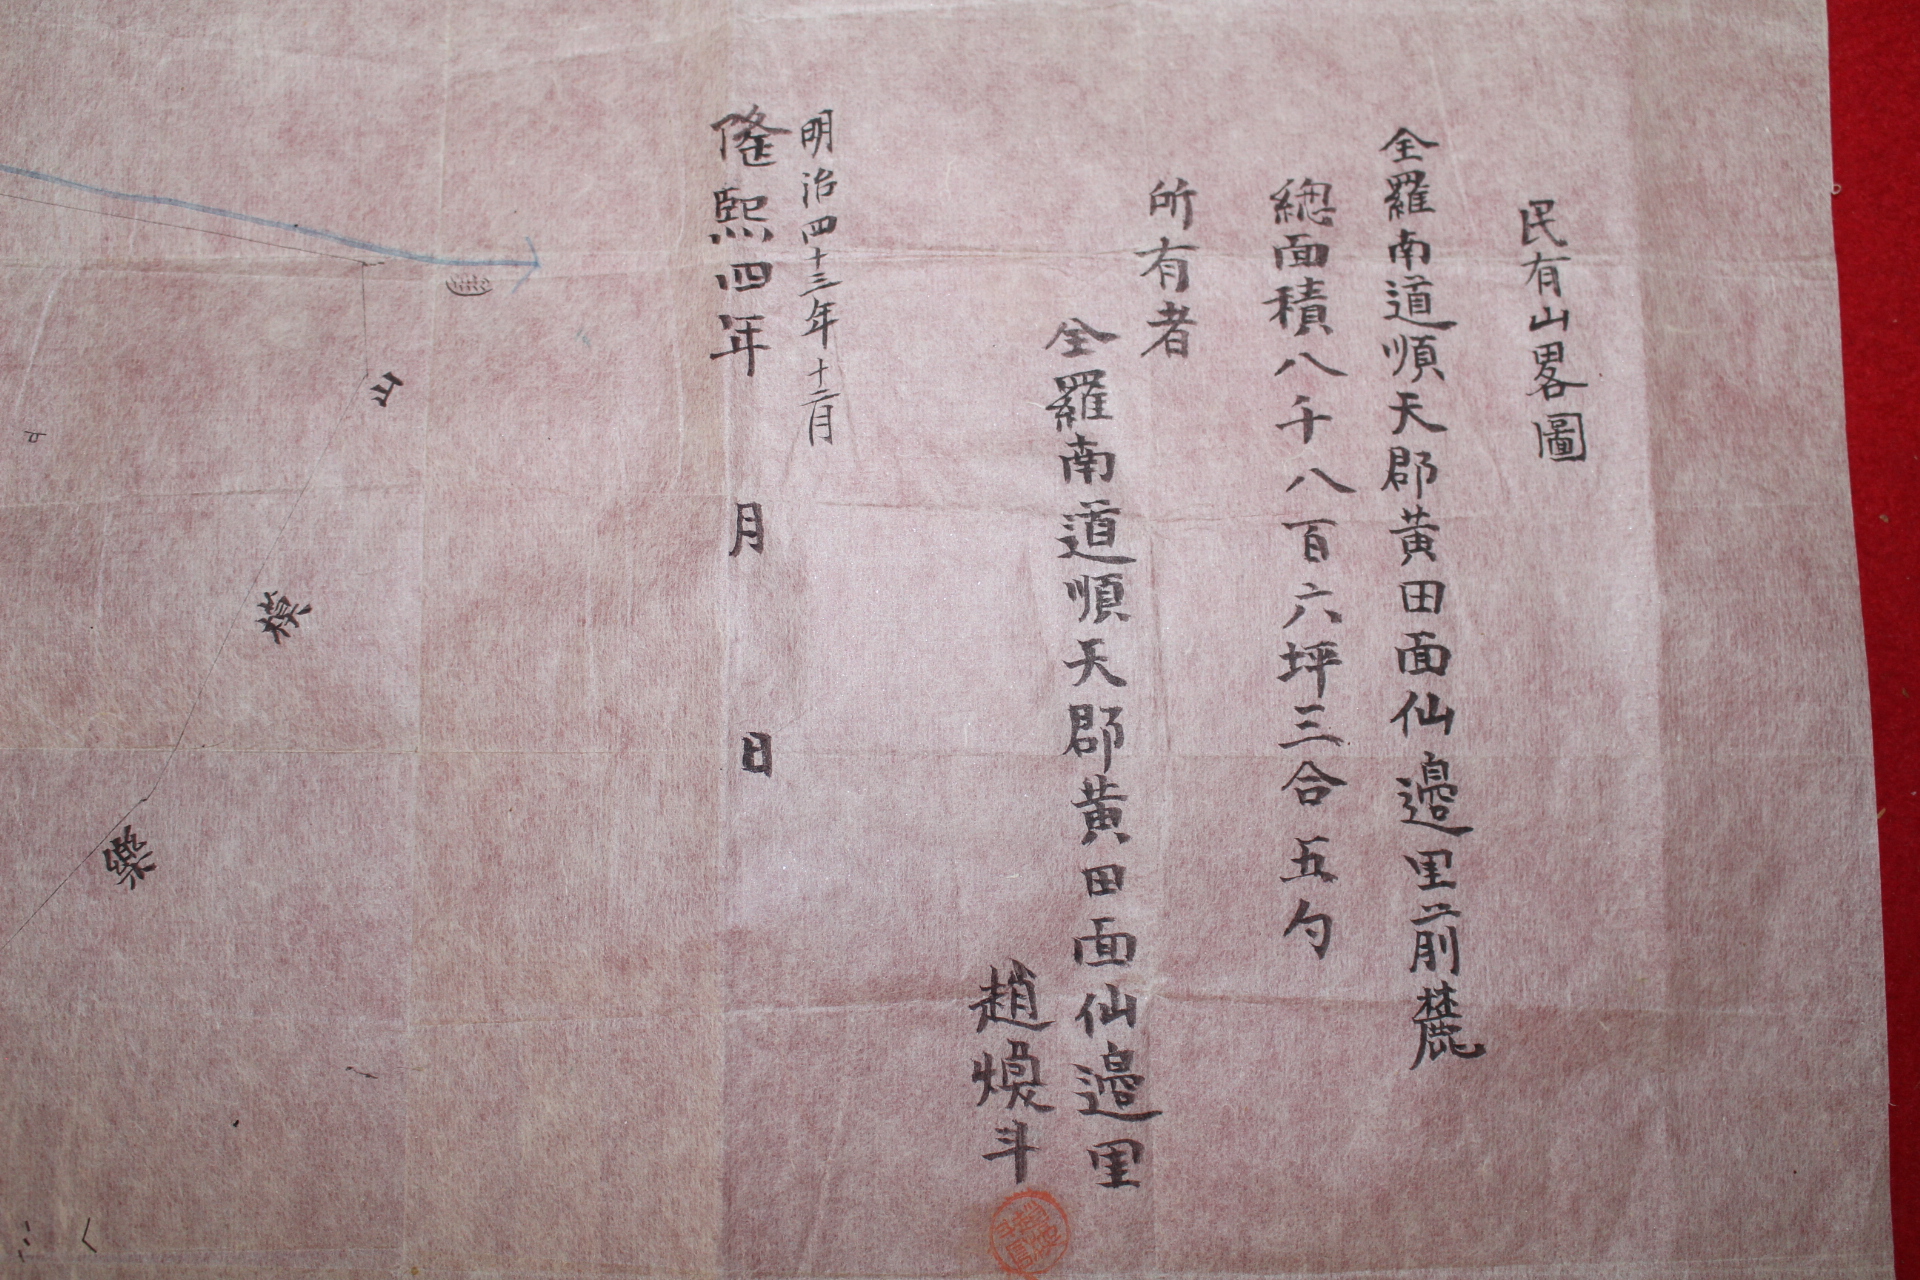 民有山畧圖
全羅南道順天郡黃田面仙邊里前麓
總面積八千八百六坪三合五勺
所有者
全羅南道順天郡黃田面仙邊里
趙煥斗
明治四十三年十二月
隆熙四年 月 日